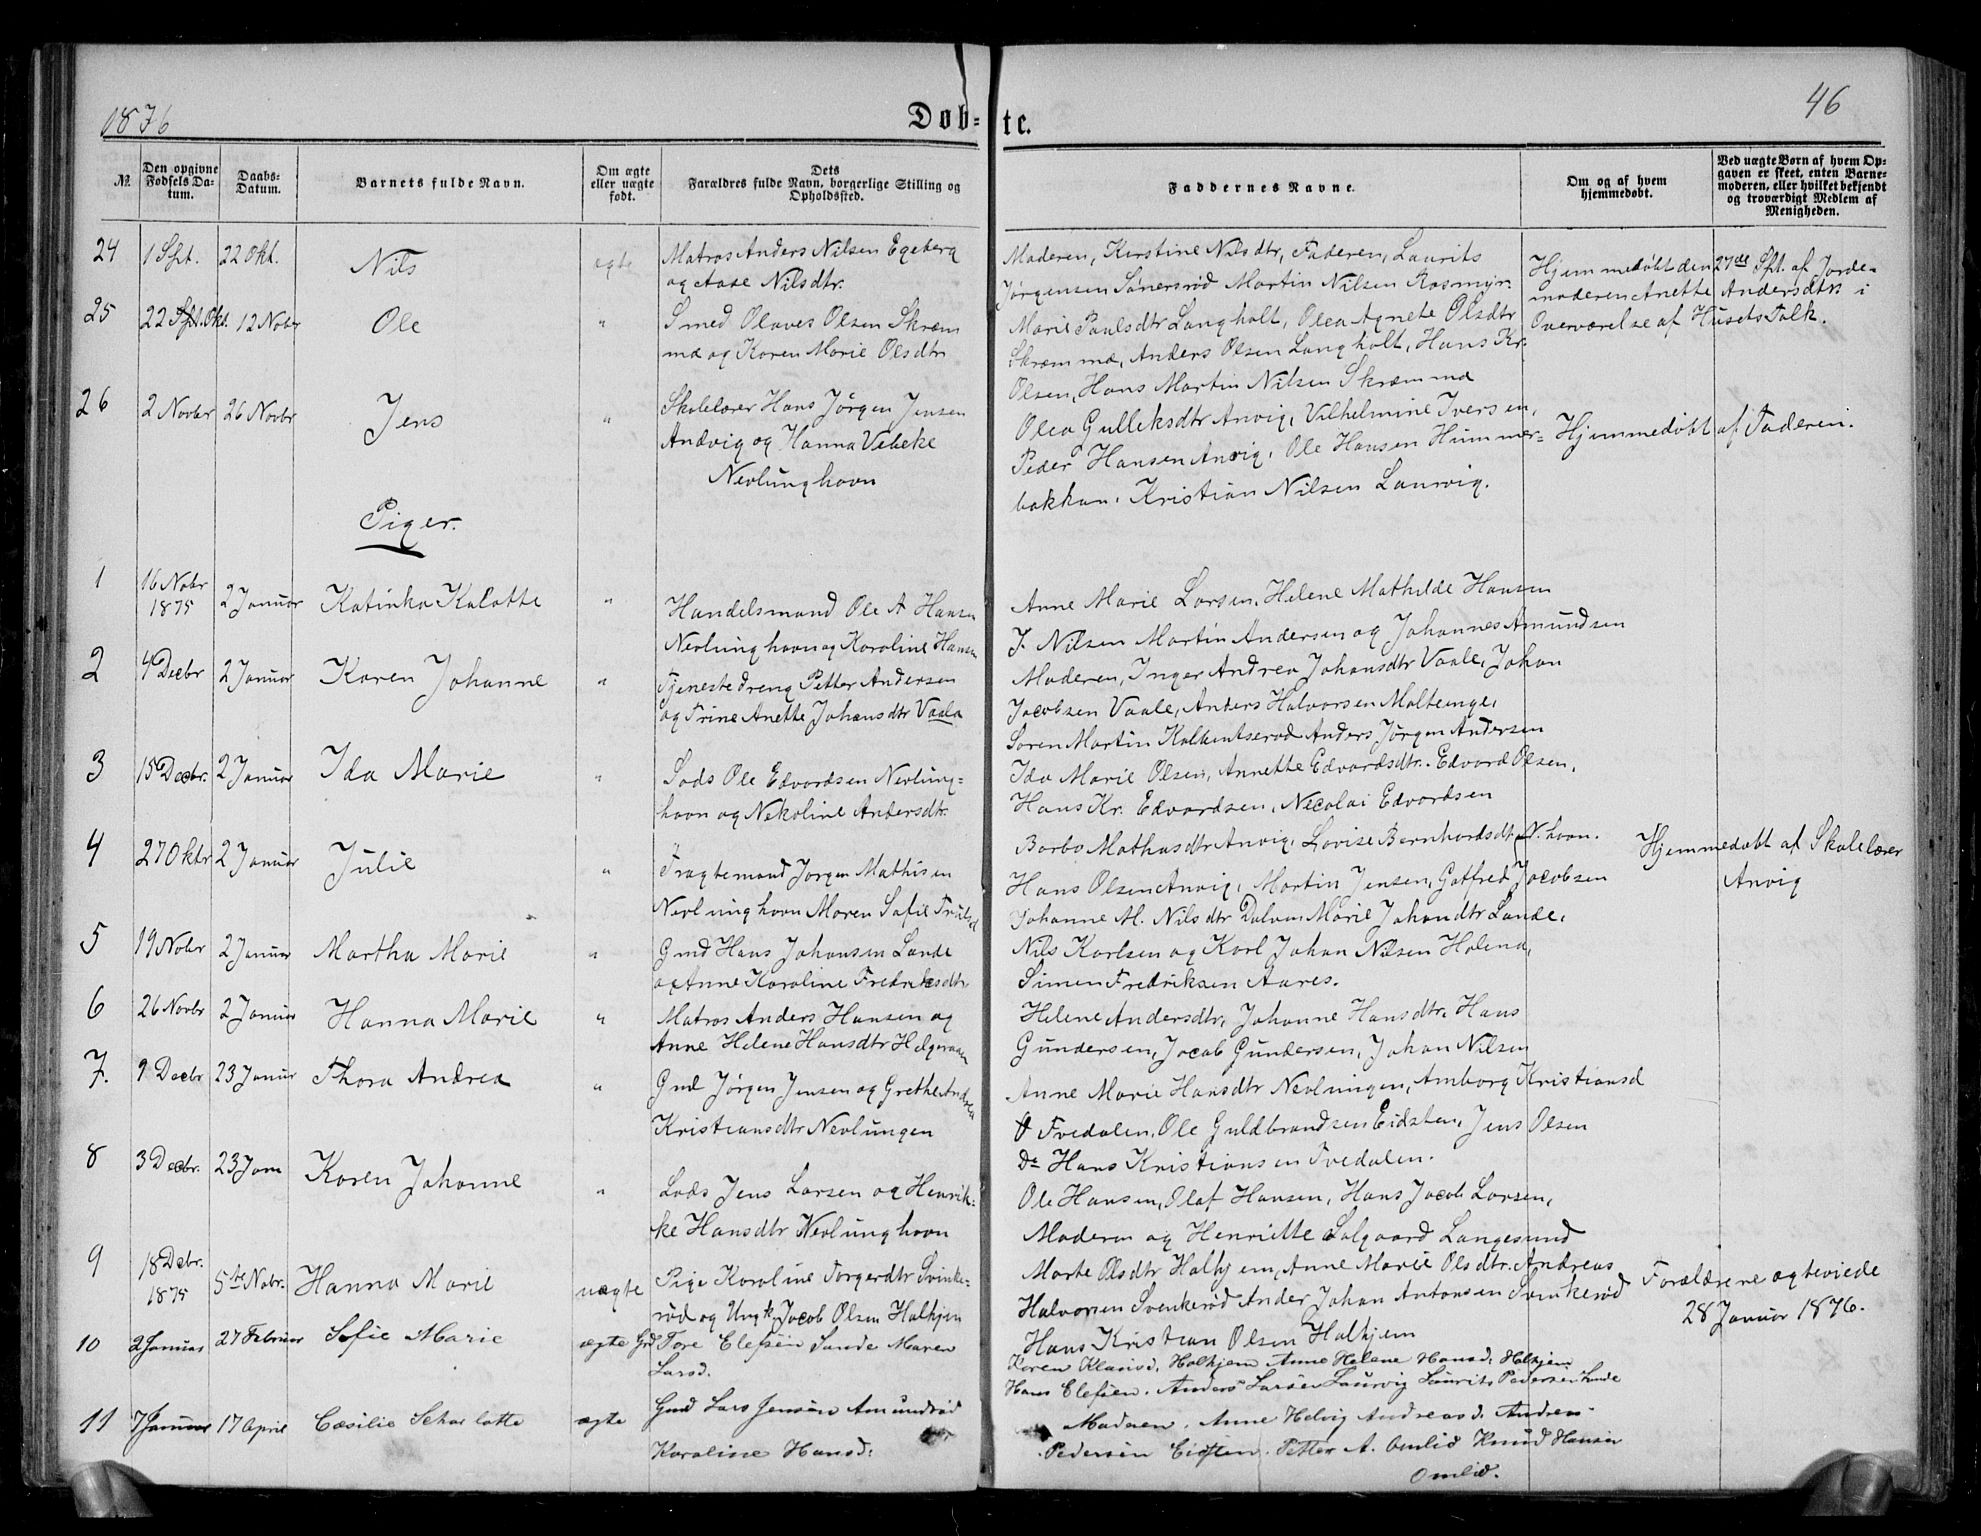 1876
Døb-te.
46
№
Den opgivne Fødsels Da-tum.
Daabs-Datum.
Barnets fulde Navn.
Om ægte eller uægte født.
Dets Forældres fulde Navn, borgerlige Stilling og Opholdssted.
Faddernes Navne.
Om og af hvem hjemmedøbt.
Ved uægte Børn af hvem Op-gaven er skeet, enten Barne-moderen, eller hvilket bekjendt og troværdigt Medlem af Menigheden.
24 1 Spt. 22 Okt. Nils ægte Matros Anders Nilsen Egeberg
og Aase Nilsdtr.
Moderen, Kirstine Nilsdtr, Faderen, Laurits
Jørgensen Sønersrød Martin Nilsen Rosmyr.
Hjemmedøbt den 27de Spt. af Jorde-
moderen Anette Andersdtr i
Overværelse af Husets Folk.
25 22 Spt. Okt. 12 Nobr Ole " Smed Olaves Olsen Skræm
mæ og Karen Marie Olsdtr
Marie Paulsdtr Langholt, Olea Agnete Olsdtr
Skræmmæ, Anders Olsen Langholt, Hans Kr.
Olsen, Hans Martin Nilsen Skræmmæ
26 2 Novbr 26 Novbr Jens " Skolelærer Hans Jørgen Jensen
Andvig og Hanna Vebeke
Nevlunghavn
Olea Gulleksdtr Anvig, Vilhelmine Iversen,
Peder Hansen Anvig, Ole Hansen Hummer-
bakken. Kristian Nilsen Laurvig.
Hjemmedøbt af Faderen.
Piger.
1 16 Nobr 1875 2 Januar Katinka Kalotte " Handelsmand Ole A Hansen
Nevlunghavn og Karoline Hansen
Anne Marie Larsen, Helene Mathilde Hansen
J. Nilsen Martin Andersen og Johannes Amundsen
2 4 Decbr 2 Januar Karen Johanne " Tjenestedreng Petter Andersen
og Trine Anette Johansdtr Vaale
Moderen, Inger Andrea Johansdtr Vaale, Johan
Jacobsen Vaale, Anders Halvorsen Molteinge,
Søren Martin Kalkentserød Anders Jørgen Andersen
3 15 Decbr. 2 Januar Ida Marie " Lods Ole Edvardsen Nevlung-
havn og Nekoline Andersdtr.
Ida Marie Olsen, Annette Edvardsdtr. Edvard Olsen,
Hans Kr. Edvardsen, Necolai Edvardsen
4 27 Oktr 2 Januar Julie " Fragtemand Jørgen Mathisen
Nevlunghavn Maren Sofie Trulsd
Barbo Mathisdtr Anvig, Lovise Bernhardsdtr N.havn.
Hans Olsen Anvig, Martin Jensen, Gotfred Jacobsen
Hjemmedøbt af Skolelærer
Anvig
5 19 Nobr 2 Januar Martha Marie " Gmd Hans Johansen Lande
og Anne Karoline Fredriksdtr
Johanne M. Nilsdtr Dalven Marie Johandtr Lande,
Nils Karlsen og Karl Johan Nilsen Holena,
Simen Fredriksen Aares.
6 26 Novbr 2 Januar Hanna Marie " Matros Anders Hansen og
Anne Helene Hansdtr Helgeraaen
Helene Andersdtr, Johanne Hansdtr, Hans
Gundersen, Jacob Gundersen, Johan Nilsen
7. 9 Decbr 23 Januar Thora Andrea " Gmd Jørgen Jensen og Grethe Andrea
Kristiansdtr Nevlungen
Anne Marie Hansdtr Nevlungen, Amborg Kristiansd
Tvedalen, Ole Guldbrandsen Eidsten, Jens Olsen
Do Hans Kristiansen Tvedalen.
8 3 Decbr. 23 Jan Karen Johanne " Lods Jens Larsen og Henrik-
ke Hansdtr Nevlunghavn
Ole Hansen, Olaf Hansen, Hans Jacob Larsen,
Moderen og Henriette Salgaard Langesund
9 18 Decbr. 1875 5te Nobr. Hanna Marie uægte Pige Karoline Torgerdtr Svinke-
rød og Ungk. Jacob Olsen Halhjem
Marte Olsdtr Halhjem, Anne Marie Olsdtr. Andreas
Halvorsen Svenkerød Ander Johan Antonsen Svinkerød
Hans Kristian Olsen Halhjem
Forældrene ægteviede
28 Januar 1876.
10 2 Januar 27 Februar Sofie Marie ægte Gd Tore Elefsen Sande Maren
Larsd.
Karen Klausd. Halhjem Anne Helene Hansd. Halhjem
Hans Elefsen. Anders Larsen Laurvig Laurits Pedersen Lunde
11 7 Januar 17 April Cæsilie Scharlotte ægte Gmd Lars Jensen Amundrød
Karoline Hansd.
Moderen. Anne Helvig Andreasd. Andreas
Pedersen Eidsten. Petter A. Omlid Knud Hansen
Omlid.